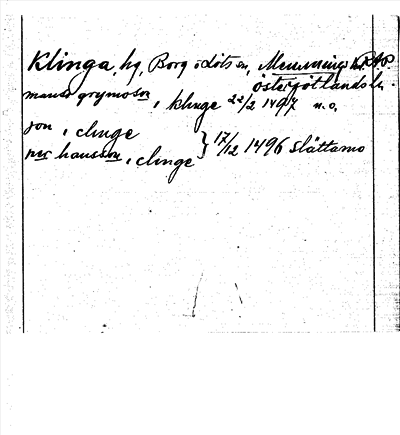 Klinga, hg, Borg o Löts sn, Memmings hd
Östergötlands l.
maunss grymsson, i klinge 22/2 1497 n.o.
jon, i clinge
per hansson, i clinge } 17/12 1496 Slättamo